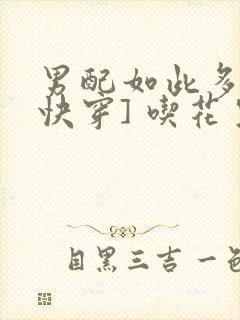 男配如此多
快穿] 喫花
目黑三吉一